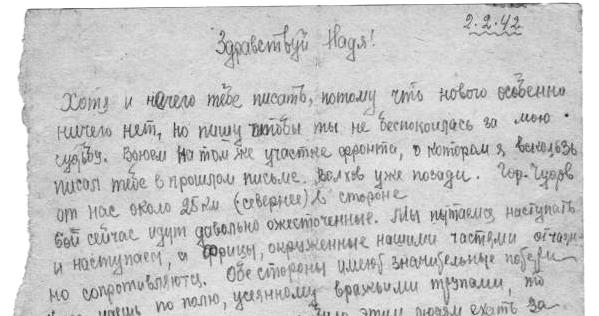 2.2.42
Здравствуй Надя!
Хотя и нечего тебе писать, потому что нового особенно
ничего нет, но пишу чтобы ты не беспокоилась за мою
судьбу. Воюем на том же участке фронта, о котором я вскользь
писал тебе в прошлом письме. Волхов уже позади. Гор. Чудов
от нас около 25 км (севернее) в стороне
Бои сейчас идут давольно ожесточенные. Мы пытаемся наступать
и наступаем, а фрицы, окруженные нашими частями отчаян-
но сопротивляются. Обе стороны имеют значительные потери
по полю, усеянному вражьими трупами, то
этим людям ехать за